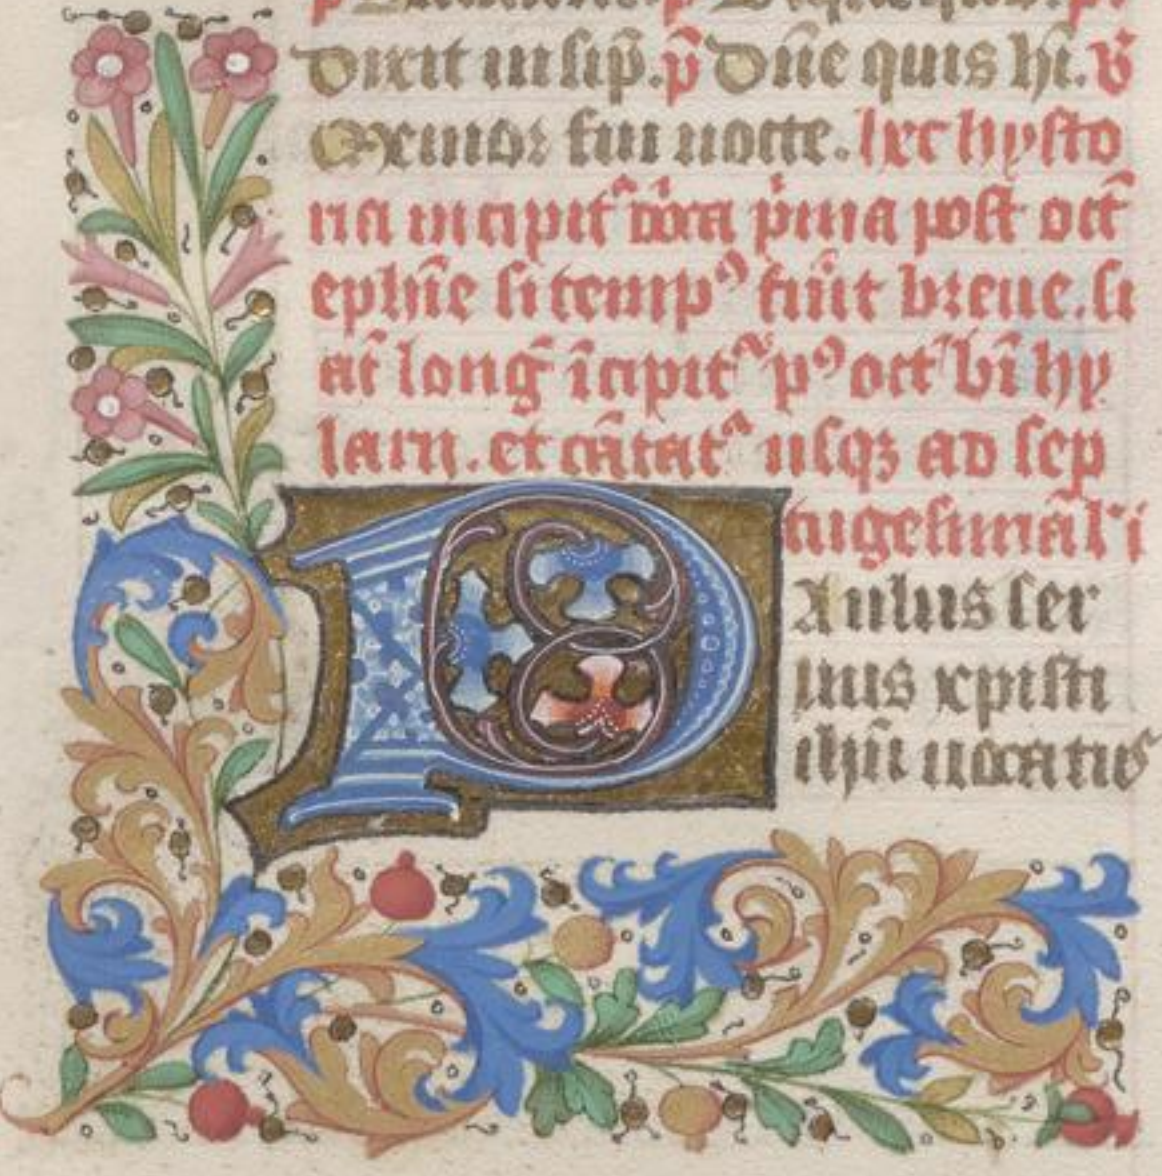 dixit insip̄. p̄ Dn̄e quis hi. v̄
Memor fui nocte. hec hysto
ria incipit̄ dn̄ica p̄ima post oct̄
ephīe si tempꝰ fūit breue. si
at̄ lonḡ īcipitᷣ pꝰ oct̄ bī hy
larii. et cātatᷣ usqꝫ ad sep
tugesimā l'i
Paulus ser
uus xpisti
ihū uocatus